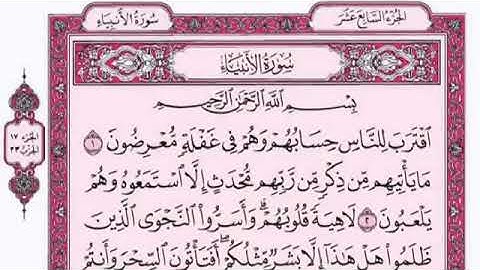 سورة الأنبياء
الجزء السابع عشر
سورة الأنبياء
الجزء ١٧
الحزب ٣٣
بِسْمِ اللَّهِ الرَّحْمَٰنِ الرَّحِيمِ
اقْتَرَبَ لِلنَّاسِ حِسَابُهُمْ وَهُمْ فِي غَفْلَةٍ مُّعْرِضُونَ ١
مَا يَأْتِيهِم مِّن ذِكْرٍ مِّن رَّبِّهِم مُّحْدَثٍ إِلَّا اسْتَمَعُوهُ وَهُمْ
يَلْعَبُونَ ٢ لَاهِيَةً قُلُوبُهُمْ ۗ وَأَسَرُّوا النَّجْوَى الَّذِينَ
ظَلَمُوا هَلْ هَٰذَا إِلَّا بَشَرٌ مِّثْلُكُمْ ۖ أَفَتَأْتُونَ السِّحْرَ وَأَنتُمْ